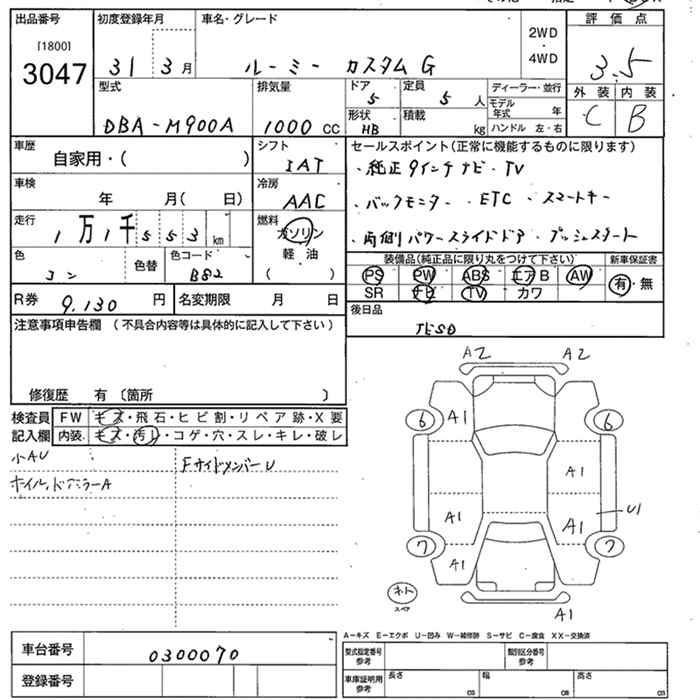 出品番号
[1800]
3047
初度登録年月
31 3月
車名・グレード
ルーミー カスタム G
2WD
・
4WD
評価点
3.5
外装 内装
C B
型式
DBA-M900A
排気量
1000 CC
ドア
5
定員
5 人
形状
HB
積載
kg
ディーラー・並行
モデル年式 年
ハンドル 左・右
車歴
自家用・( )
シフト
IAT
車検
年 月( 日)
冷房
AAC
走行
1万1千553 km
燃料
ガソリン
軽油
( )
色
コン
色替
色コード
B82
R券 9.130 円
名変期限 月 日
セールスポイント(正常に機能するものに限ります)
・純正9インチナビ・TV
・バックモニター ・ETC ・スマートキー
・両側パワースライドドア ・プッシュスタート
装備品(純正品に限り丸をつけて下さい)
新車保証書
PS PW ABS エアB AW
SR ナビ TV カワ
有・無
後日品
注意事項申告欄 (不具合内容等は具体的に記入して下さい)
修復歴 有〔箇所 〕
検査員
記入欄
FW キズ・飛石・ヒビ割・リペア跡・X要
内装 キズ・汚レ・コゲ・穴・スレ・キレ・破レ
小AU
FサイドメンバーU
ホイル,ドアミラーA
A2 A2
6 A1 6
A1
A1 A1 U1
7 A1 7
A1
スペア
A-キズ E-エクボ U-凹み W-補修跡 S-サビ C-腐食 XX-交換済
車台番号
0300070
登録番号
型式指定番号
参考
類別区分番号
参考
車庫証明用
参考
長さ cm
幅 cm
高さ cm